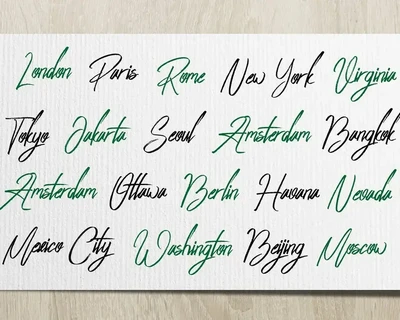 London Paris Rome New York Virginia
Tokyo Jakarta Seoul Amsterdam Bangkok
Amsterdam Ottawa Berlin Havana Nevada
Mexico City Washington Beijing Moscow